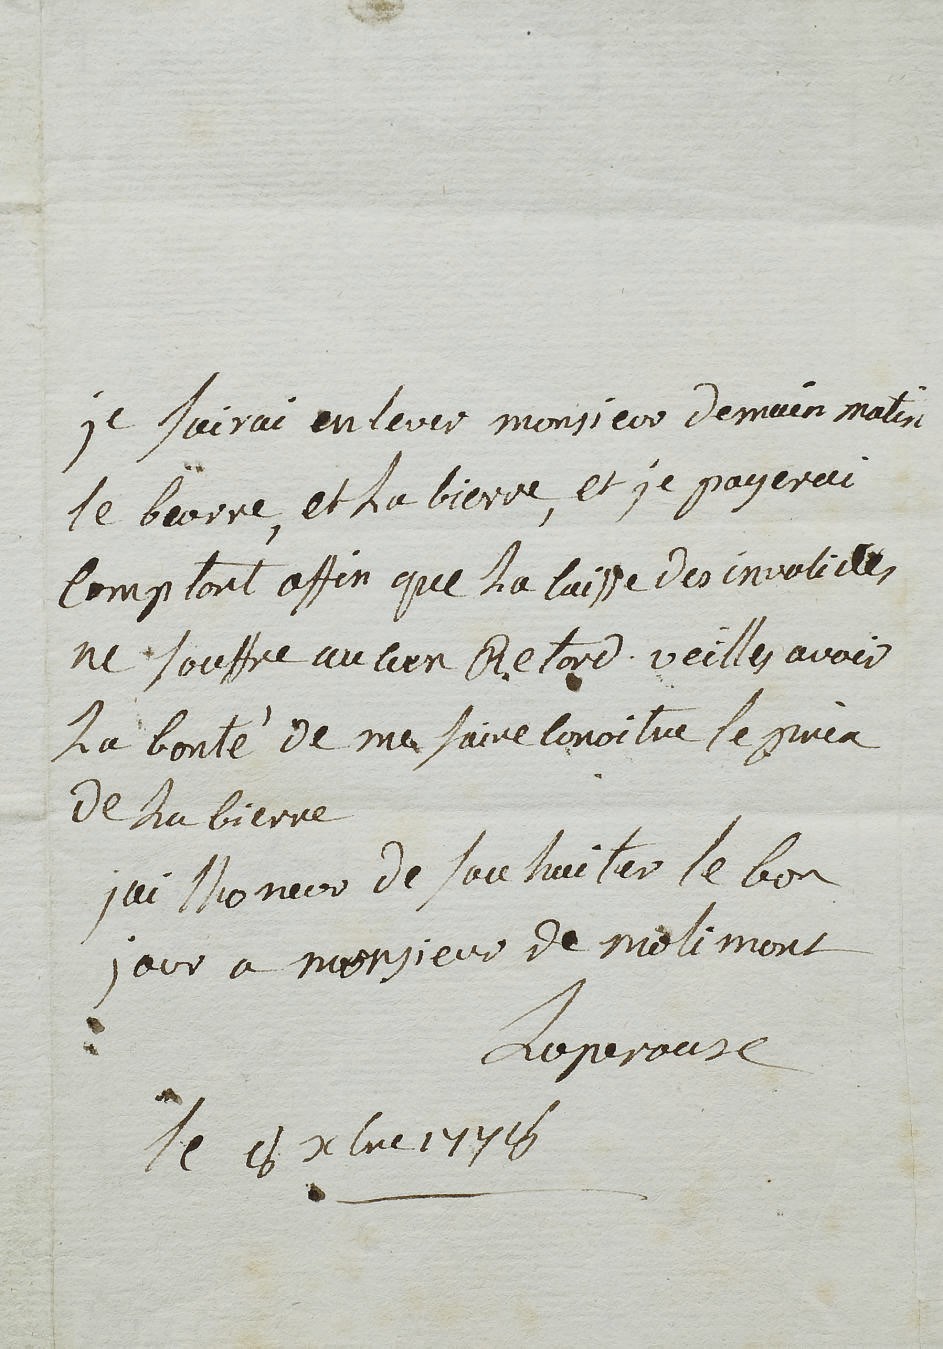 je fairai enlever monsieur demain matin
le beurre, et La bierre, et je payerai
Comptent affin que La Caisse des invalides
ne souffre aucun Retard. veilles avoir
La bonté de me faire Conoitre le priex
de La bierre
jai lhoneur de souhaiter le bon
jour a monsieur de molimont
Laperouse
le 8 xbre 1778